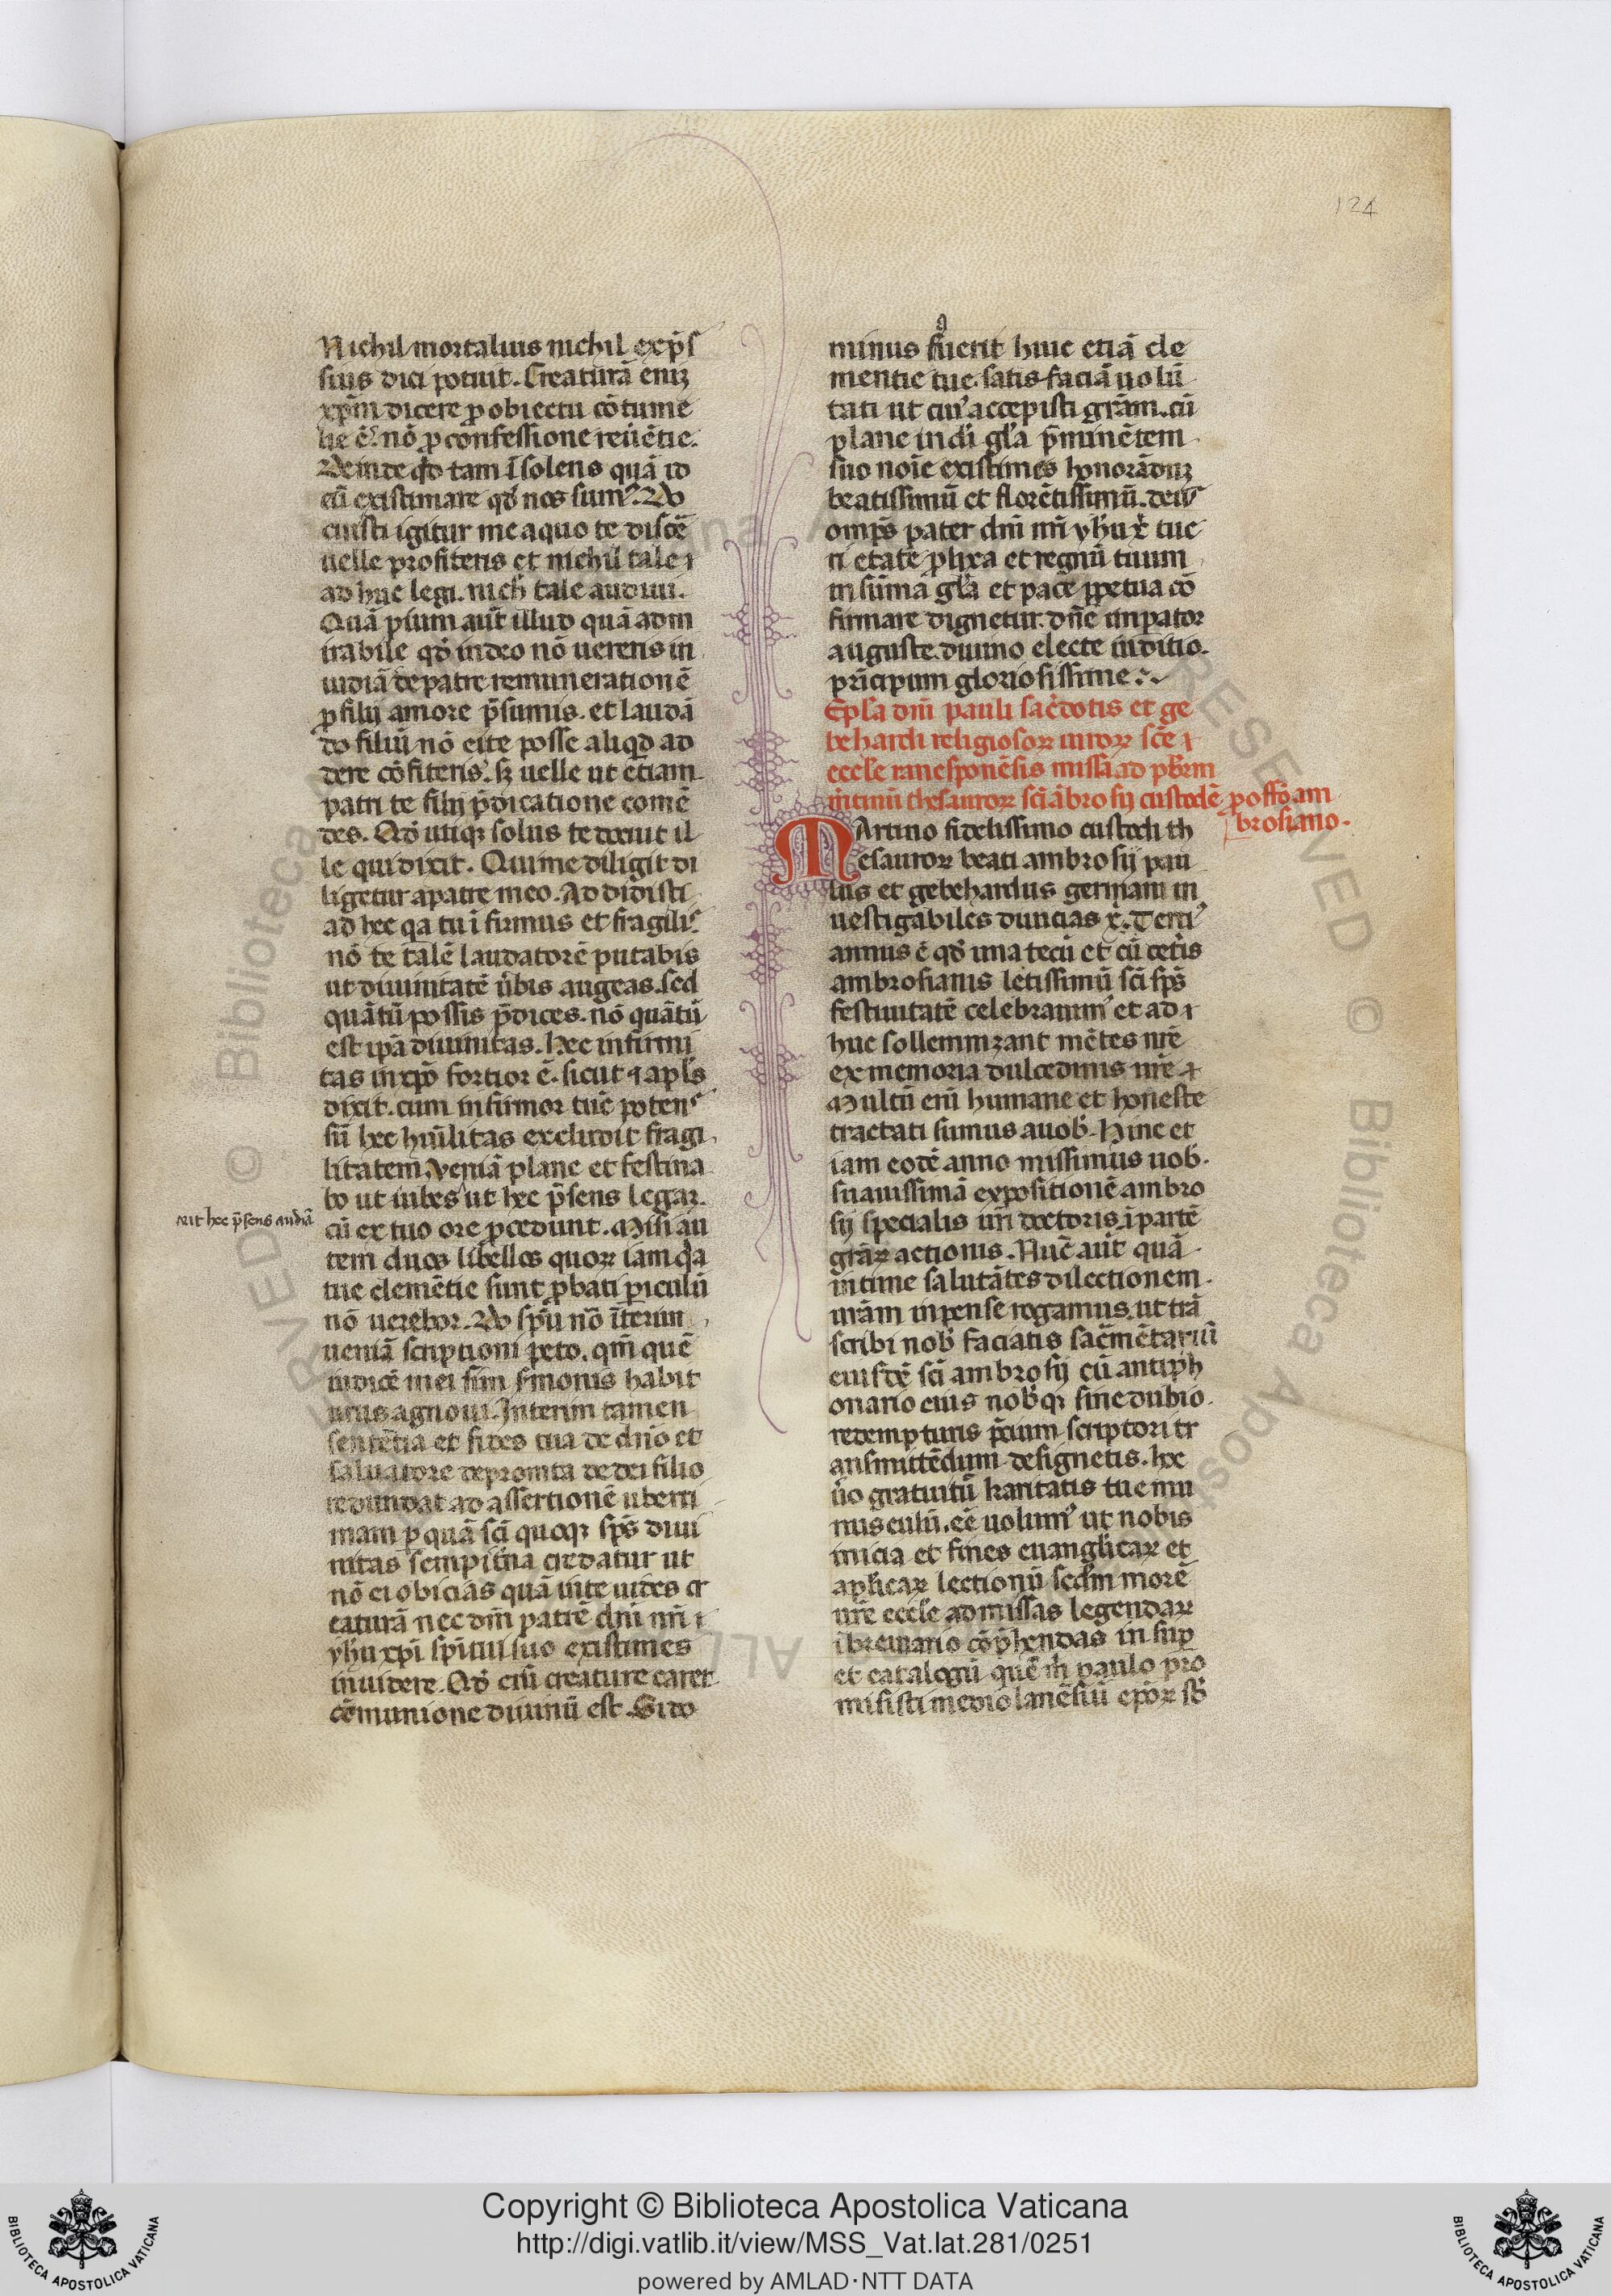 124
Nichil mortaliuis nichil exp̄s
sius dici potuit. Creaturā eniꝫ
xp̄m dicere ꝓ obiectu cōtume
lie ē. nō ꝓ confessione reuētie.
Deinde qd̄ tam īsolens quā id
eū existimare qd̄ nos sumꝰ. Do
cuisti igitur me a quo te discē
uelle profiteris et nichil tale
ad huc legi. nich̄ tale audiui.
Quā pium aūt illud quā adm
irabile qd̄ in deo nō uereris in
uidiā de patre remunerationē
ꝓ filij amore p̄sumis. et laudā
do filiū nō eite posse aliqd ad
dere cōfiteris. sꝫ uelle ut etiam
patri te filij p̄dicatione comē
des. Qd̄ utiqꝫ solus te docuit il
le qui dixit. Qui me diligit di
ligetur a patre meo. Addidisti
ad hec qa tu ī firmus et fragilis
nō te talē laudatorē putabis
ut diuinitatē ūbis augeas. sed
quātū possis p̄dices. nō quātū
est ip̄a diuinitas. Hec infirmi
tas in xp̄o fortior ē. sicut ⁊ apl̄s
dixit. cum infirmor tūc potens
sū hec hūilitas excludit fragi
litatem. Veniā plane et festina
bo ut iubes ut hec p̄sens legaꝫ.
aut hec p̄sens audiā
cū ex tuo ore ꝓcedunt. Misi au
tem duos libellos quoꝝ iam qa
tue clemētie sunt ꝓbati ꝑiculū
nō uerebor. Do sp̄u nō īterim
ueniā scriptioni peto. qm̄ quē
iudicē mei sim s̄monis habit
urus agnoui. Interim tamen
sentētia et fides tua de dn̄o et
saluatore depromta de dei filio
redundat ad assertionē uberri
mam ꝑ quā sc̄i quoqꝫ sp̄s diui
nitas sempit̄na credatur ut
nō ei obicias quā in te uides cr
eaturā nec dm̄ patrē dn̄i nr̄i
yh̄u xp̄i sp̄itui suo existimes
inuidere. Qd̄ eiū creature caret
cōmunione diuinū est. Si do
minus fuerit huic etiā cle
mentie tue. satis faciā uolū
tati ut cuiꝰ accepisti grām. cū
plane in di gl̄a p̄minētem
suo noīe existimes honorāduꝫ
beatissimū et florētissimū. deus
omp̄s pater dn̄i nr̄i yh̄u x̄ tue
ri etate ꝓlixa et regnū tuum
in sūma gl̄a et pace ꝑpetua cō
firmare dignetur. dn̄e imꝑator
auguste. diuino electe iuditio.
prīcipum gloriosissime :~
Ep̄la dn̄i pauli sac̄dotis et ge
behardi religiosoꝝ uiroꝝ sc̄e
eccl̄e ranesponēsis missa ad p̄brm
m̄tinū thesauroꝝ sc̄i ābrosij custodē ꝓ offō am
brosiano.
MArtino fidelissimo custodi th
esauroꝝ beati ambrosij pau
lus et gebehardus germani in
uestigabiles diuicias x̄. Terciꝰ
annus ē qd̄ una tecū et cū cet̄is
ambrosianis letissimū sc̄i sp̄s
festiuitatē celebrauimꝰ et ad
huc sollemnizant mētes nr̄e
ex memoria dulcedinis nr̄e
Multū eni humane et honeste
tractati sumus a uob̄. Hinc et
iam eodē anno missimus uob̄.
suauissimā expositionē ambro
sij specialis ur̄i doctoris. ī partē
grāꝝ actionis. Nūc aūt quā
intime salutātes dilectionem
urām inpense rogamus. ut trā
scribi nob̄ faciatis sac̄mētariū
eiusdē sc̄i ambrosij cū antiph
onario eius nob̄qꝫ sine dubio.
redempturis p̄cium scriptori tr
ansmittēdum designetis. hec
ūo gratuitū karitatis tue mu
nusculū. ēē uolumꝰ ut nobis
inicia et fines euangl̄icaꝝ et
apl̄icaꝝ lectionū scd̄m morē
ur̄e eccl̄e ad missas legendaꝝ
ī breuiario cōp̄hendas in suꝑ
et catalogū quē m̄ paulo pro
misisti mediolanēsiū ep̄oꝝ sb̄
Copyright © Biblioteca Apostolica Vaticana
http://digi.vatlib.it/view/MSS_Vat.lat.281/0251
powered by AMLAD·NTT DATA
BIBLIOTECA APOSTOLICA VATICANA
BIBLIOTECA APOSTOLICA VATICANA